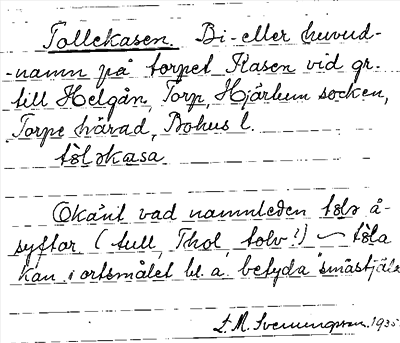 Tollekasen. Bi- eller huvud-
-namn på torpet Kasen vid gr.
till Helgån, Torp, Hjärtum socken,
Torpe härad, Bohus l.
Okänt vad namnleden å-
syftar (tull, Thol, tolv?) –
kan i ortsmålet bl. a. betyda "småstjäla
L.M. Svenungsson. 1935